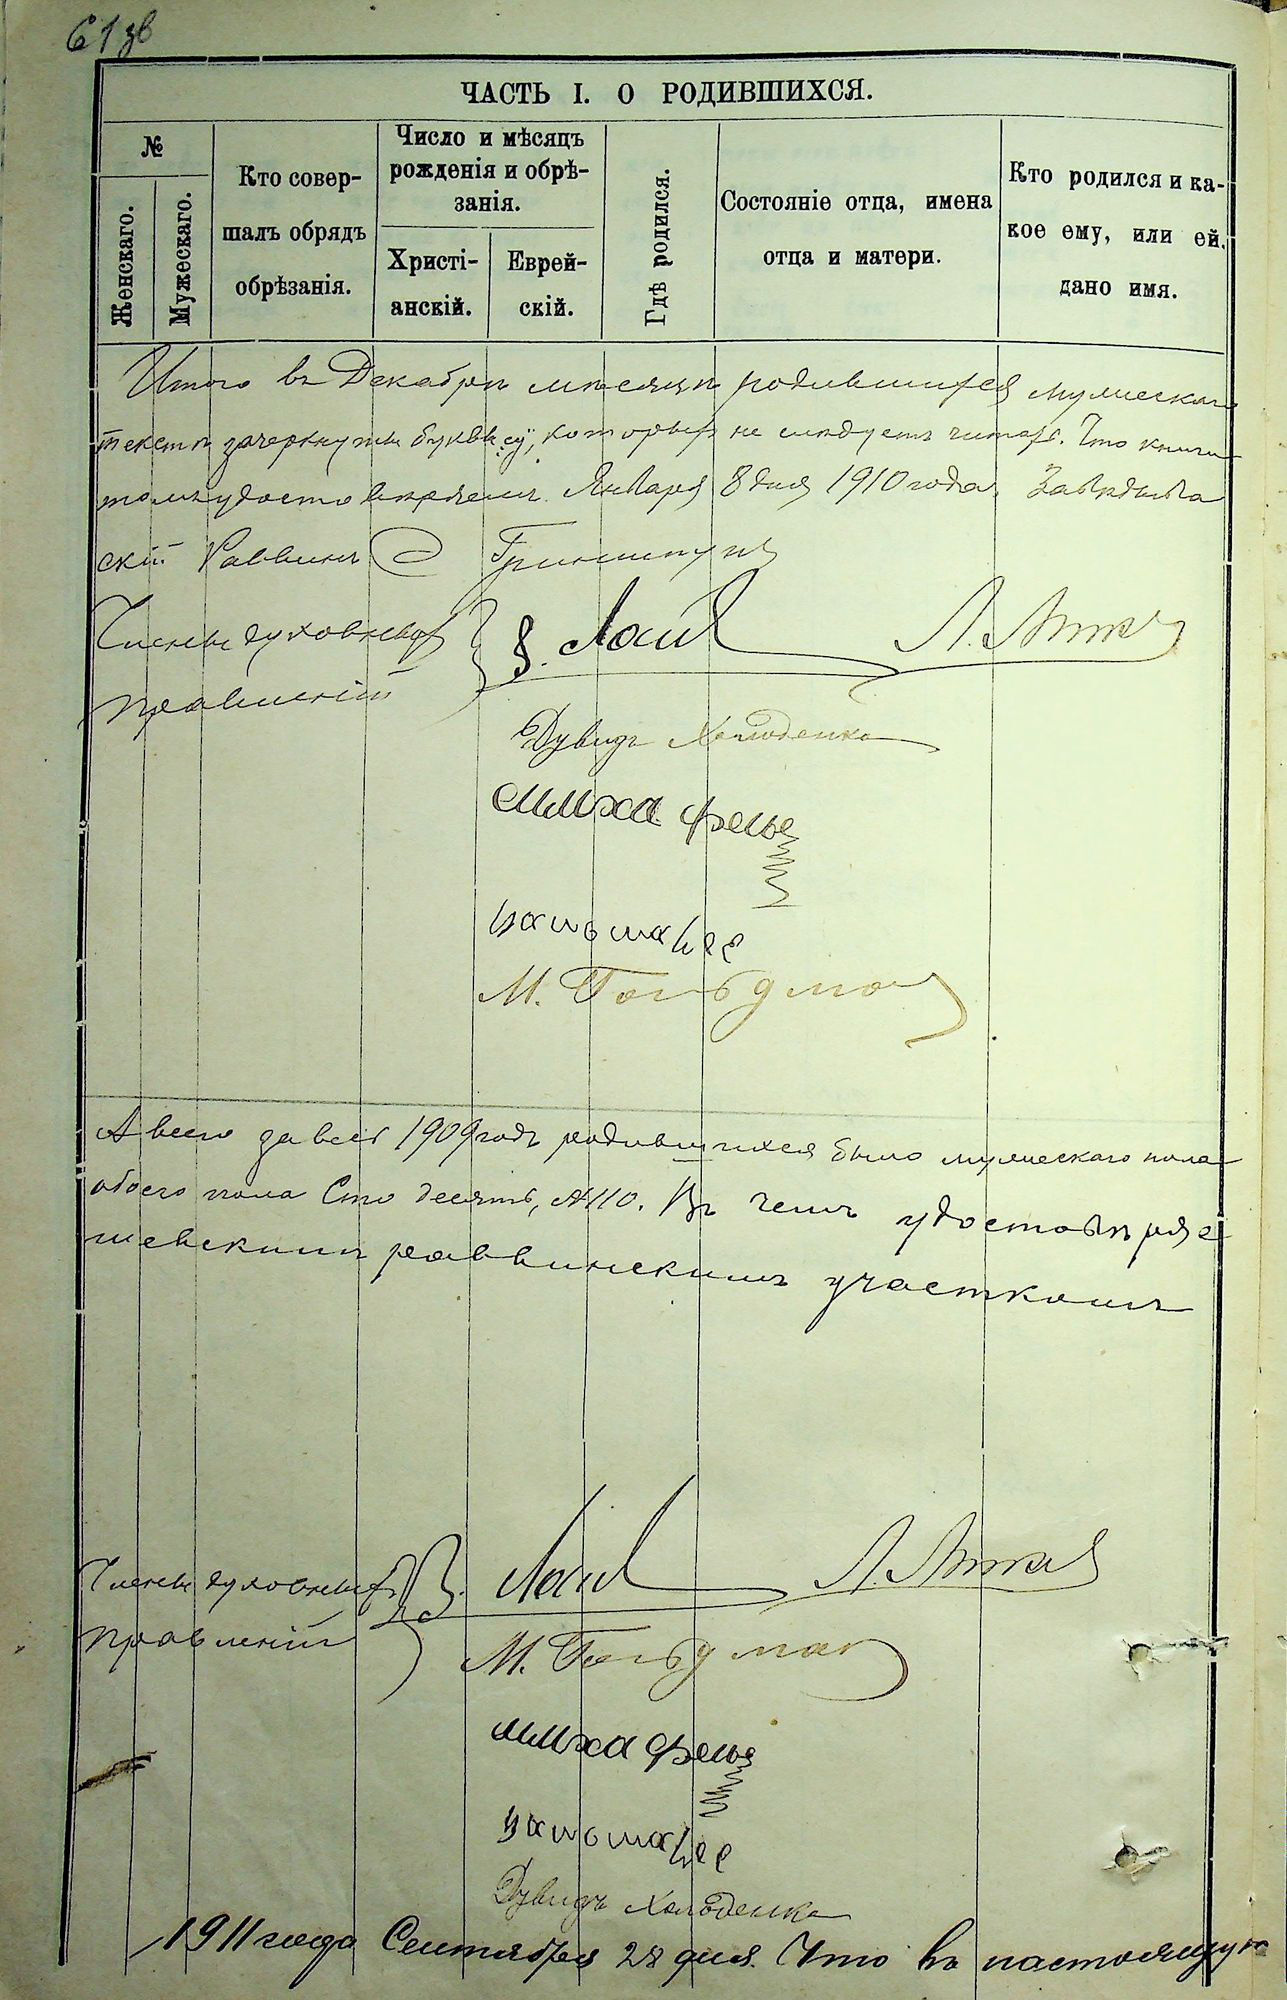 61 зв
ЧАСТЬ I. О РОДИВШИХСЯ.
№
Женскаго.
Мужескаго.
Кто совер-
шалъ обрядъ
обрѣзанія.
Число и мѣсяцъ
рожденія и обрѣ-
занія.
Христі-
анскій.
Еврей-
скій.
Гдѣ родился.
Состояніе отца, имена
отца и матери.
Кто родился и ка-
кое ему, или ей,
дано имя.
Итого въ Декабрѣ мѣсяцѣ родившихся мужескаго
текстѣ зачеркнуты буквы которыя не слѣдуетъ читать. Что книги
удостовѣряемъ. Января 8 дня 1910 года. Завѣдыва
скій Раввинъ
Члены духовныхъ
правленій
Л. Литв
Дувидъ Холоденко
М. Гольдман
А всего за весь 1909 годъ родившихся было мужескаго пола
обоего пола Сто десять, №110. Въ чемъ удостовѣряе
шевскимъ раввинскимъ участкомъ
Члены духовныхъ
правленій
Л. Литв
М. Гольдман
Дувидъ Холоденко
1911 года Сентября 28 дня. Что въ настоящую